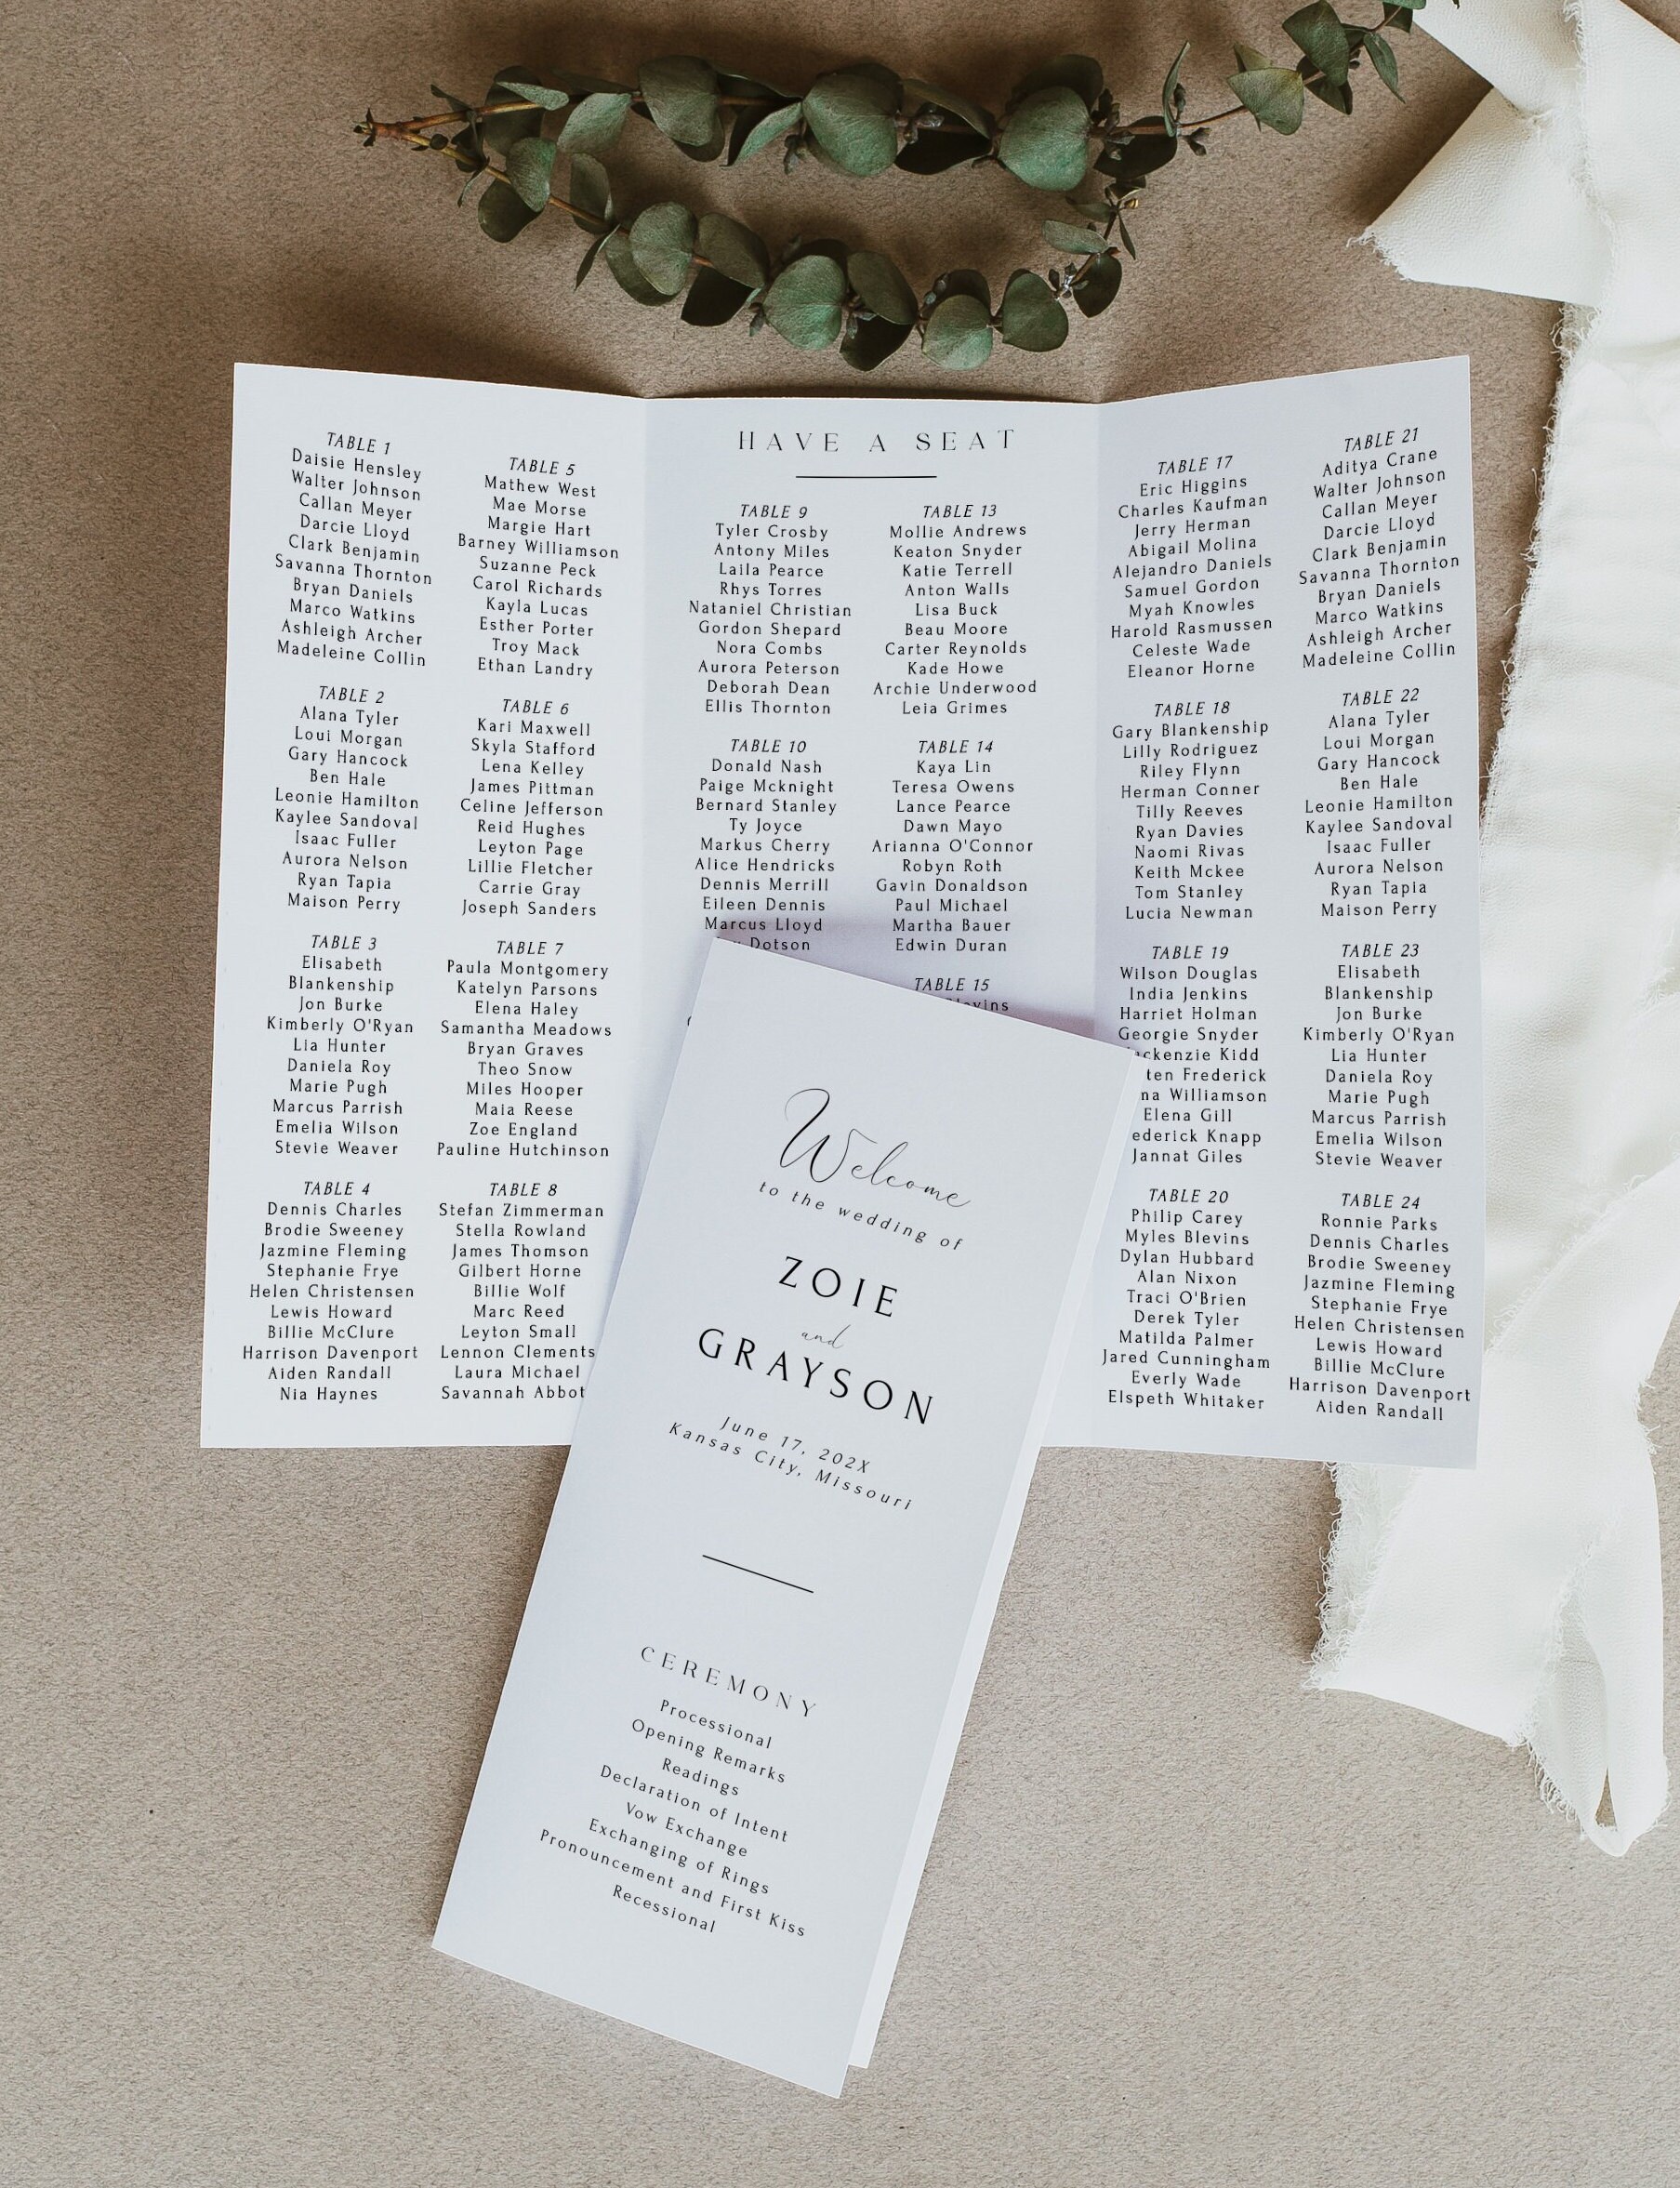 TABLE 1
Daisie Hensley
Walter Johnson
Callan Meyer
Darcie Lloyd
Clark Benjamin
Savanna Thornton
Bryan Daniels
Marco Watkins
Ashleigh Archer
Madeleine Collin
TABLE 2
Alana Tyler
Loui Morgan
Gary Hancock
Ben Hale
Leonie Hamilton
Kaylee Sandoval
Isaac Fuller
Aurora Nelson
Ryan Tapia
Maison Perry
TABLE 3
Elisabeth
Blankenship
Jon Burke
Kimberly O'Ryan
Lia Hunter
Daniela Roy
Marie Pugh
Marcus Parrish
Emelia Wilson
Stevie Weaver
TABLE 4
Dennis Charles
Brodie Sweeney
Jazmine Fleming
Stephanie Frye
Helen Christensen
Lewis Howard
Billie McClure
Harrison Davenport
Aiden Randall
Nia Haynes
TABLE 5
Mathew West
Mae Morse
Margie Hart
Barney Williamson
Suzanne Peck
Carol Richards
Kayla Lucas
Esther Porter
Troy Mack
Ethan Landry
TABLE 6
Kari Maxwell
Skyla Stafford
Lena Kelley
James Pittman
Celine Jefferson
Reid Hughes
Leyton Page
Lillie Fletcher
Carrie Gray
Joseph Sanders
TABLE 7
Paula Montgomery
Katelyn Parsons
Elena Haley
Samantha Meadows
Bryan Graves
Theo Snow
Miles Hooper
Maia Reese
Zoe England
Pauline Hutchinson
TABLE 8
Stefan Zimmerman
Stella Rowland
James Thomson
Gilbert Horne
Billie Wolf
Marc Reed
Leyton Small
Lennon Clements
Laura Michael
Savannah Abbot
HAVE A SEAT
TABLE 9
Tyler Crosby
Antony Miles
Laila Pearce
Rhys Torres
Nataniel Christian
Gordon Shepard
Nora Combs
Aurora Peterson
Deborah Dean
Ellis Thornton
TABLE 10
Donald Nash
Paige Mcknight
Bernard Stanley
Ty Joyce
Markus Cherry
Alice Hendricks
Dennis Merrill
Eileen Dennis
Marcus Lloyd
Dotson
TABLE 13
Mollie Andrews
Keaton Snyder
Katie Terrell
Anton Walls
Lisa Buck
Beau Moore
Carter Reynolds
Kade Howe
Archie Underwood
Leia Grimes
TABLE 14
Kaya Lin
Teresa Owens
Lance Pearce
Dawn Mayo
Arianna O'Connor
Robyn Roth
Gavin Donaldson
Paul Michael
Martha Bauer
Edwin Duran
TABLE 15
TABLE 17
Eric Higgins
Charles Kaufman
Jerry Herman
Abigail Molina
Alejandro Daniels
Samuel Gordon
Myah Knowles
Harold Rasmussen
Celeste Wade
Eleanor Horne
TABLE 18
Gary Blankenship
Lilly Rodriguez
Riley Flynn
Herman Conner
Tilly Reeves
Ryan Davies
Naomi Rivas
Keith Mckee
Tom Stanley
Lucia Newman
TABLE 19
Wilson Douglas
India Jenkins
Harriet Holman
Georgie Snyder
ckenzie Kidd
ten Frederick
na Williamson
Elena Gill
ederick Knapp
Jannat Giles
TABLE 20
Philip Carey
Myles Blevins
Dylan Hubbard
Alan Nixon
Traci O'Brien
Derek Tyler
Matilda Palmer
Jared Cunningham
Everly Wade
Elspeth Whitaker
TABLE 21
Aditya Crane
Walter Johnson
Callan Meyer
Darcie Lloyd
Clark Benjamin
Savanna Thornton
Bryan Daniels
Marco Watkins
Ashleigh Archer
Madeleine Collin
TABLE 22
Alana Tyler
Loui Morgan
Gary Hancock
Ben Hale
Leonie Hamilton
Kaylee Sandoval
Isaac Fuller
Aurora Nelson
Ryan Tapia
Maison Perry
TABLE 23
Elisabeth
Blankenship
Jon Burke
Kimberly O'Ryan
Lia Hunter
Daniela Roy
Marie Pugh
Marcus Parrish
Emelia Wilson
Stevie Weaver
TABLE 24
Ronnie Parks
Dennis Charles
Brodie Sweeney
Jazmine Fleming
Stephanie Frye
Helen Christensen
Lewis Howard
Billie McClure
Harrison Davenport
Aiden Randall
Welcome
to the wedding of
ZOIE
and
GRAYSON
June 17, 202X
Kansas City, Missouri
CEREMONY
Processional
Opening Remarks
Readings
Declaration of Intent
Vow Exchange
Exchanging of Rings
Pronouncement and First Kiss
Recessional